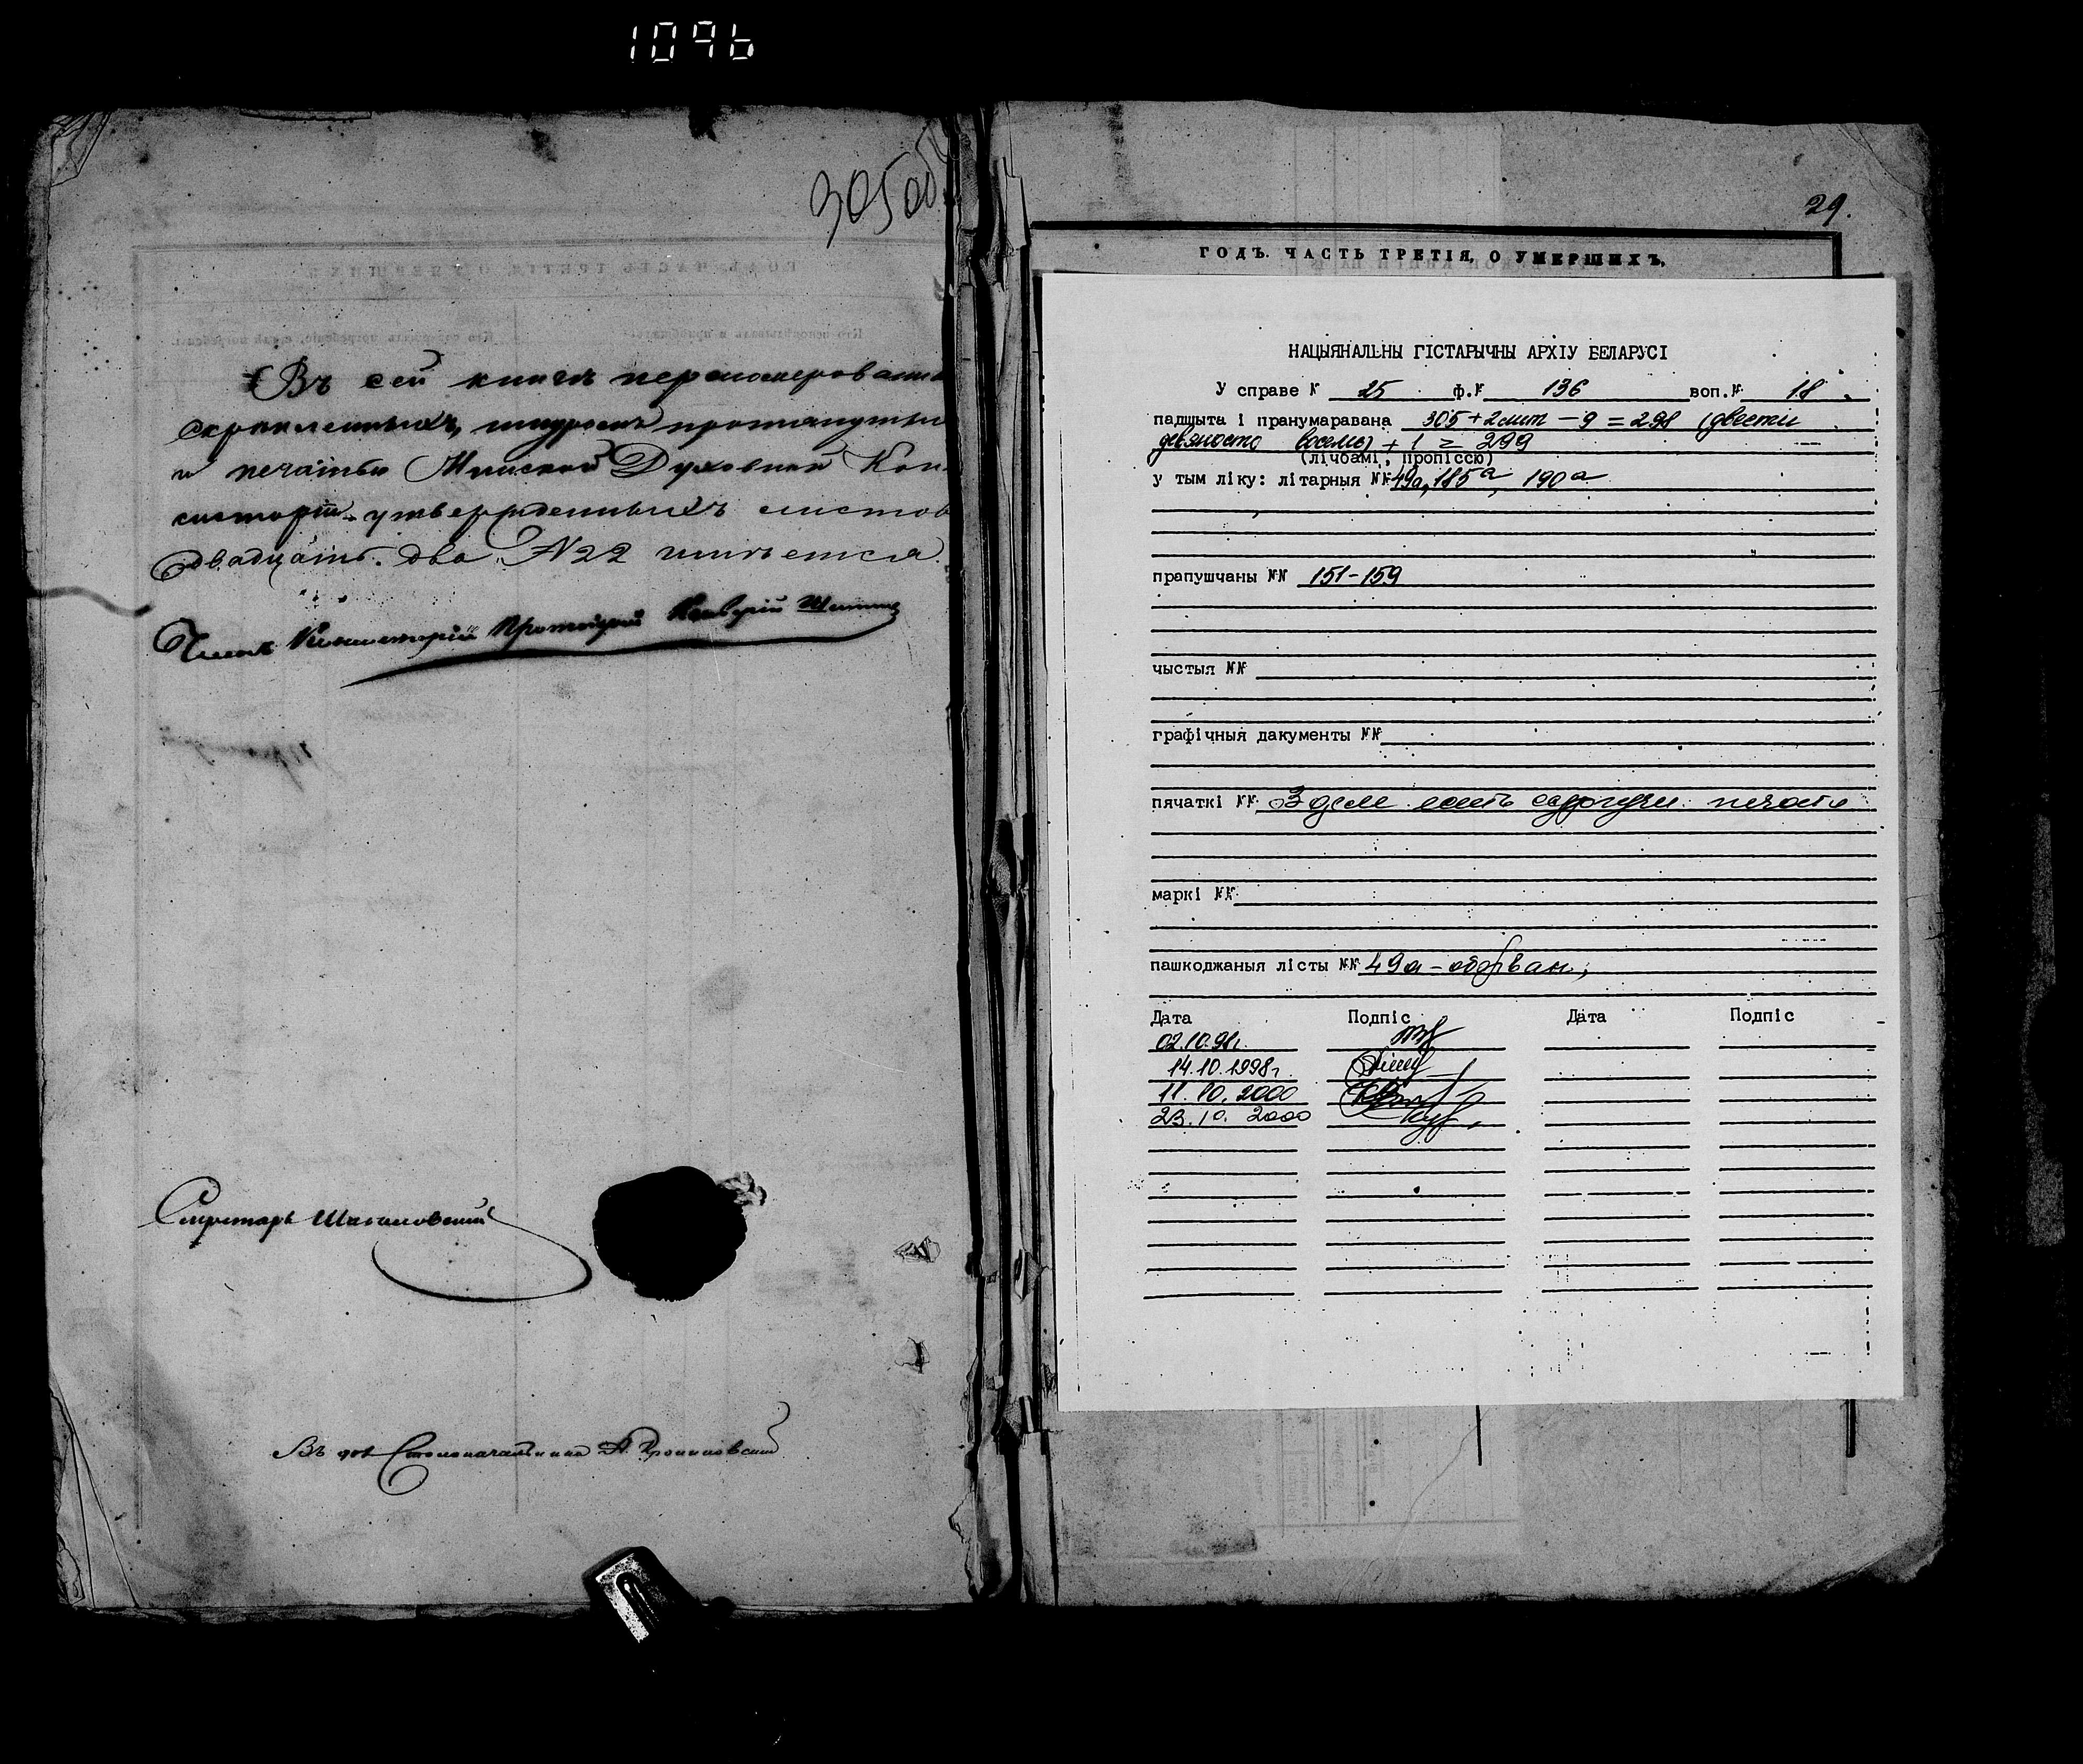 1096
305 об
Въ сей книгѣ перенумерованныхъ
скрѣпленныхъ, шнуромъ протянутыхъ
и печатью Минской Духовной Кон
систоріи утвержденныхъ листов
двадцать два № 22 имѣется.
Членъ Консисторіи Протоіерей
Секретарь
Въ дол Столоначальника
29.
ГОДЪ. ЧАСТЬ ТРЕТІЯ, О УМЕРШИХЪ,
НАЦЫЯНАЛЬНЫ ГІСТАРЫЧНЫ АРХІУ БЕЛАРУСІ
У справе № 25 ф.№ 136 воп.№ 18
падшыта і пранумаравана 305+2лит-9=298 (двести
девяносто восемь) + 1 = 299
(лічбамі, пропіссю)
у тым ліку: літарныя №№ 49а, 185а, 190а
прапушчаны №№ 151-159
чыстыя №№
графічныя дакументы №№
пячаткі №№ В деле есть сургучн. печати
маркі №№
пашкоджаныя лісты №№ 49а - оборван;
Дата Подпіс Дата Подпіс
02.10.98г.
14.10.1998г.
11.10.2000
23.10.2000